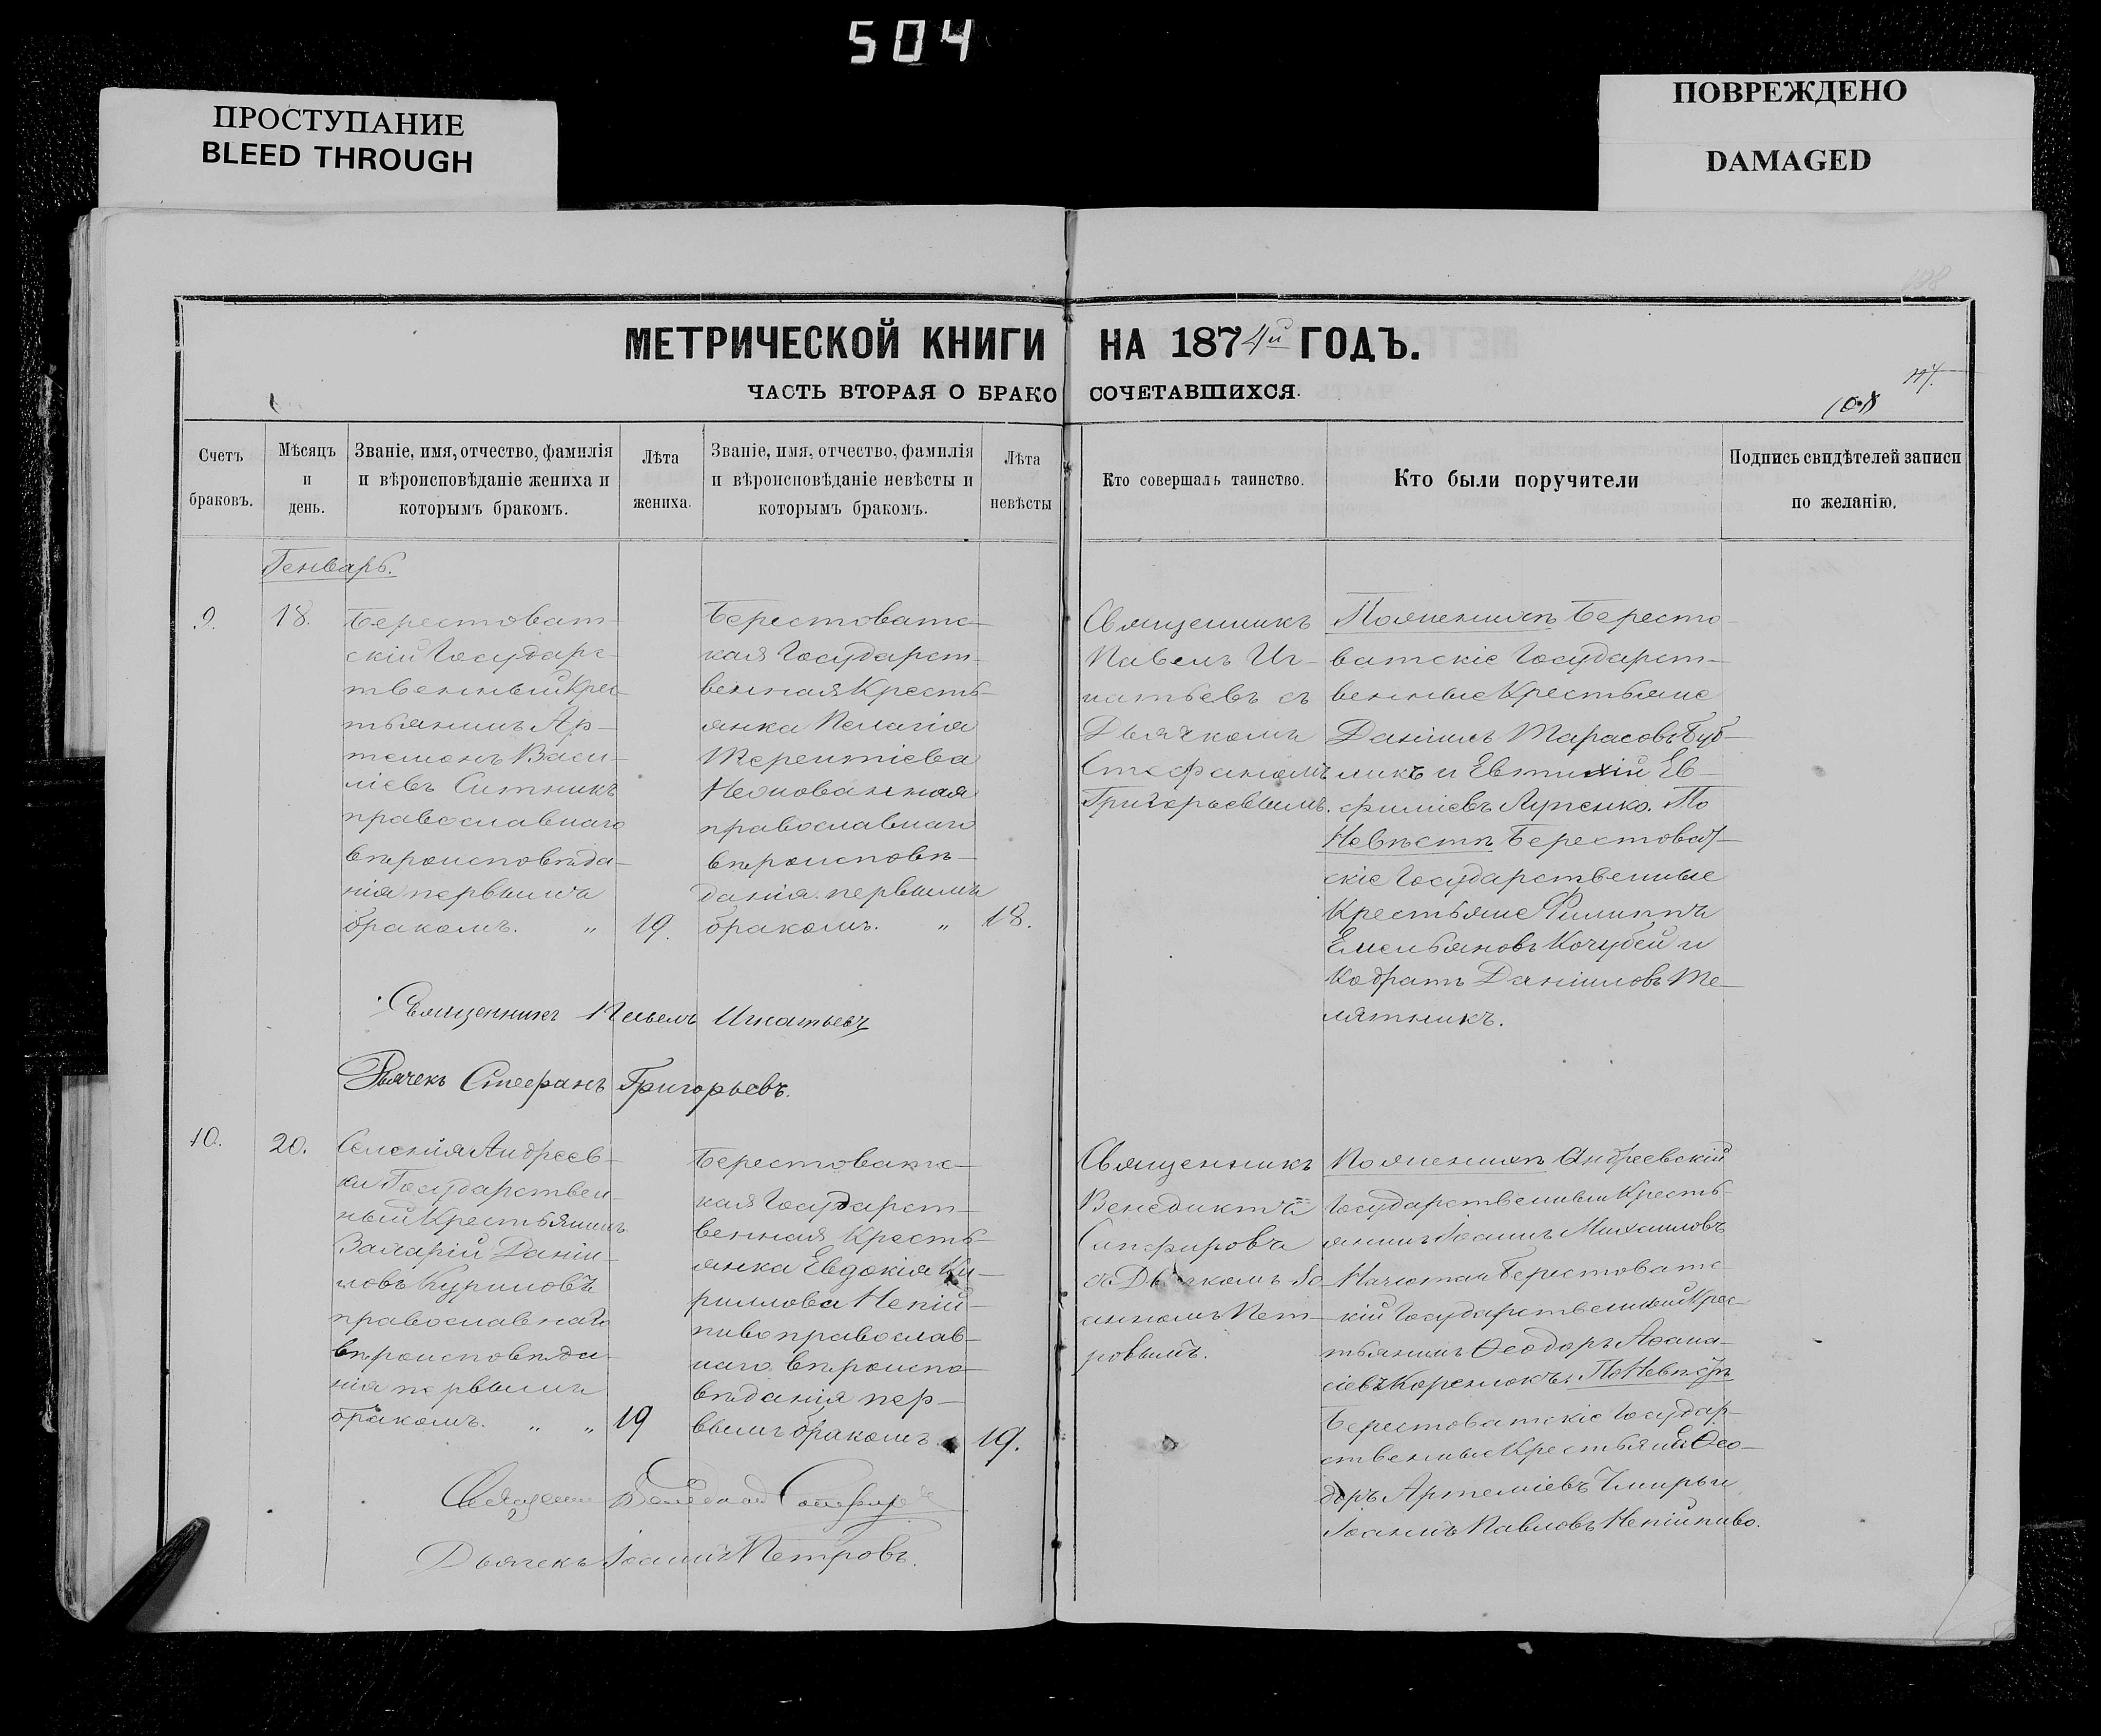 504
ПРОСТУПАНИЕ
BLEED THROUGH
ПОВРЕЖДЕНО
DAMAGED
МЕТРИЧЕСКОЙ КНИГИ НА 1874й ГОДЪ.
ЧАСТЬ ВТОРАЯ О БРАКОСОЧЕТАВШИХСЯ.
108
Счетъ
браковъ.
Мѣсяцъ
и
день.
Званіе, имя, отчество, фамилія
и вѣроисповѣданіе жениха и
которымъ бракомъ.
Лѣта
жениха.
Званіе, имя, отчество, фамилія
и вѣроисповѣданіе невѣсты и
которымъ бракомъ.
Лѣта
невѣсты
Кто совершалъ таинство.
Кто были поручители
Подпись свидѣтелей записи
по желанію.
Генварь.
9.
18.
Берестоват-
скій Государс-
твенный Крес-
тьянинъ Ар-
темонъ Васи-
ліевъ Ситникъ
православнаго
вѣроисповѣда-
нія первымъ
бракомъ. "
19.
Берестоватс-
кая Государст-
венная Кресть-
янка Пелагія
Терентіева
православнаго
вѣроисповѣ-
данія первымъ
бракомъ. "
18.
Священникъ
Павелъ Иг-
натьевъ съ
Дьячкомъ
Стефаномъ
Григорьевымъ.
По женихѣ Бересто-
ватскіе Государст-
венные Крестьяне
Даніилъ Тарасовъ Буб-
ликъ и Евтихій Ев-
фиміевъ Луценко. По
Невѣстѣ Берестоват-
скіе Государственные
Крестьяне Филиппъ
Емельяновъ Кочубей и
Кодратъ Даніиловъ Те-
лятникъ.
Священникъ Павелъ Игнатьевъ
Дьячекъ Стефанъ Григорьевъ.
10.
20.
Селенія Андреев-
ки Государствен-
ный Крестьянинъ
Захарій Даніи-
ловъ Куриловъ
православнаго
вѣроисповѣда-
нія первымъ
бракомъ. " "
19
Берестоватс-
кая Государст-
венная Кресть-
янка Евдокія Ки-
риллова Непій-
пиво православ-
наго вѣроиспо-
вѣданія пер-
вымъ бракомъ.
19.
Священникъ
Венедиктъ
Сапфировъ
съ Дьячкомъ Іо-
анномъ Пет-
ровымъ.
По женихѣ Андреевскій
Государственный Кресть-
янинъ Іоаннъ Михаиловъ
Берестоватс-
кій Государственный Крес-
тьянинъ Ѳеодоръ Аѳана-
сіевъ Коренюкъ. По Невѣстѣ
Берестоватскіе Государ-
ственные Крестьяне Ѳео-
доръ Артеміевъ Чмирь и
Іоаннъ Павловъ Непійпиво.
Священникъ Венедиктъ Сапфировъ
Дьячекъ Іоаннъ Петровъ.